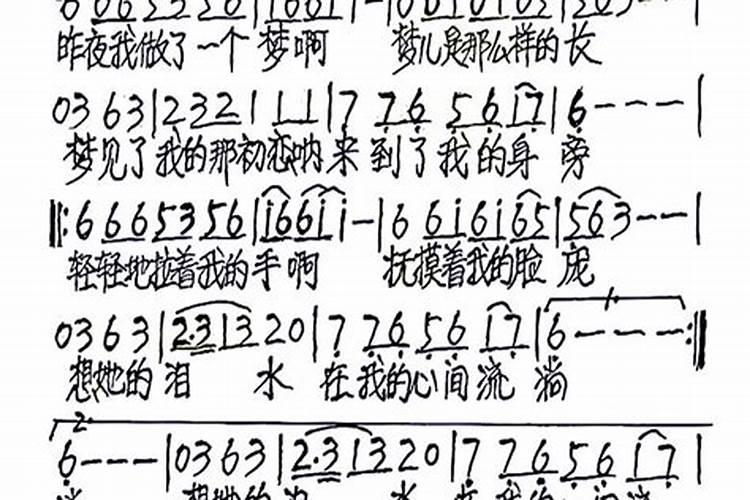 昨夜我做了一个梦啊 梦儿是那么样的长
0363|232111|776 5617|6---|
梦见了我的那初恋呐来到了我的身旁
‖:66653 56|i66i i-|6 6i6i65|563--|
轻轻地拉着我的手啊 抚摸着我的脸庞
0363|2·31320|776 5617|6---:‖
想她的泪 水 在我的心间流淌
2.
6---|0363|2·31320|776 5617|